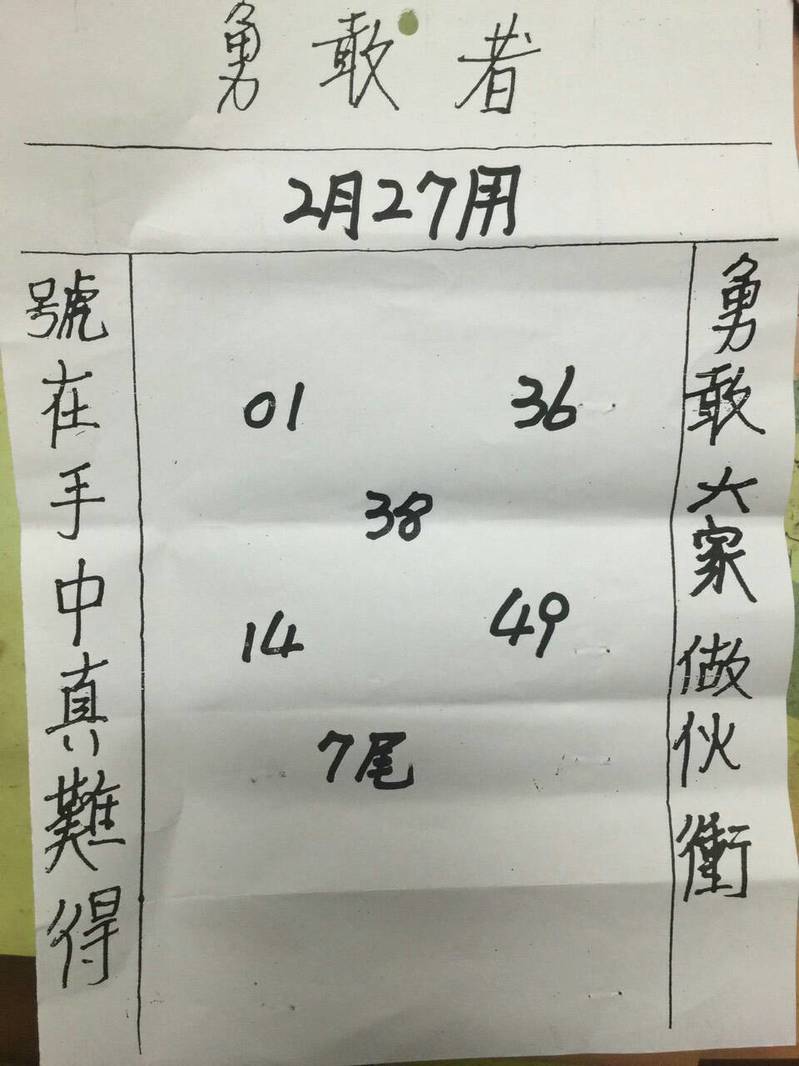 勇敢者
2月27用
勇敢大家做伙衝
01 36
38
14 49
7尾
號在手中真難得